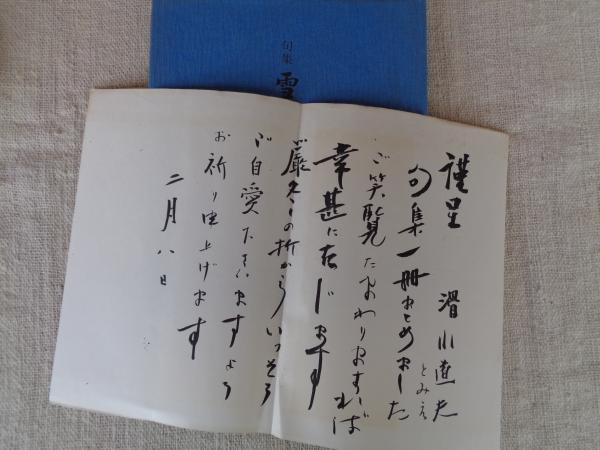 句集 雪
謹呈 滑川直夫
とみえ
句集一冊まとめました
ご笑覧たまわりますれば
幸甚に存じます
厳冬の折からいっそう
ご自愛下さいますよう
お祈り申上げます
二月八日